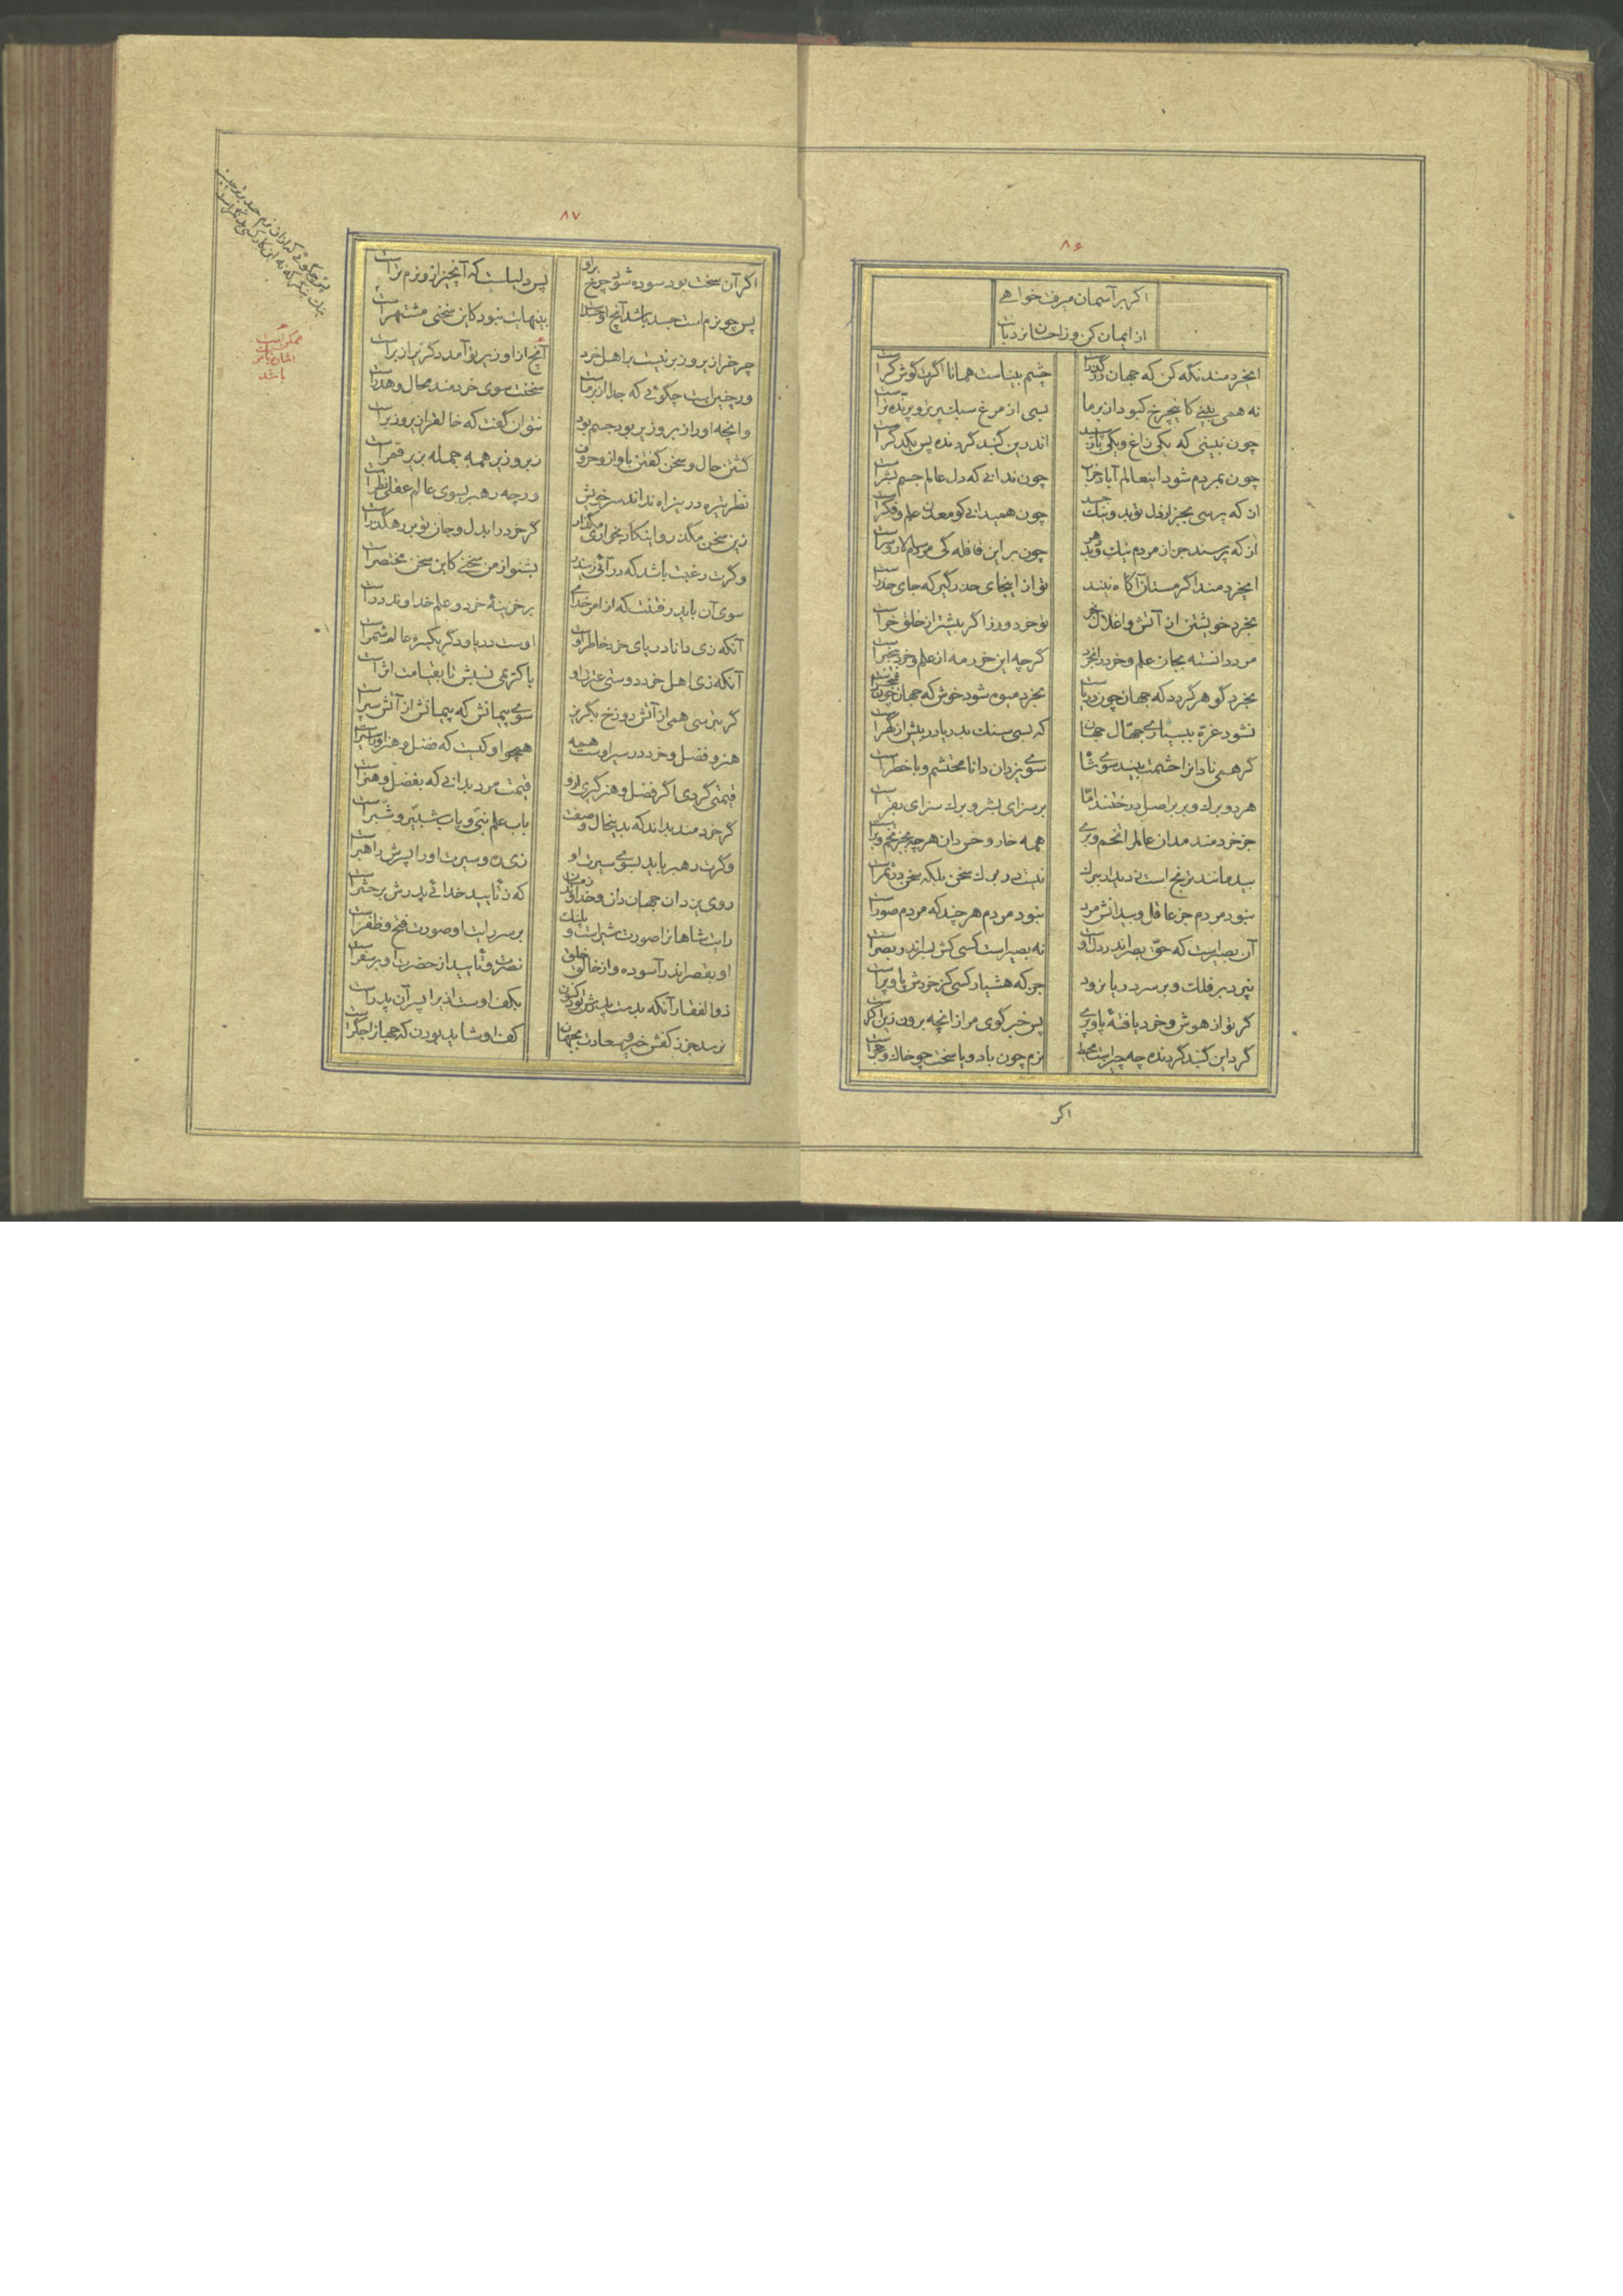 ۸۶
اگر بر آسمان میرفت خواهے
از ایمان کن وز احسان نردبان
ایخردمند نگه کن که جهان در گذر است چشم بیناست همانا اگرت گوش کر است
نه همی بینے کاینچرخ کبود از بر ما بسی از مرغ سبک پر تر و پرنده تر است
چون نبینی که یکی زاغ و یکی باز سپید اندرین گنبد گردنده پس یکدگر است
چون بمردم شود اینعالم آباد خراب چون ندانے که دل عالم جسم بشر است
از که پرسی بجز از دل تو بد و نیک چون همیدانے کو معدن علم و فکر است
از که پرسند جز از مردم نیک و بد چون بر این قافله
ایخردمند اگر مستان آگاه نیند تو از اینجای حذر گیر که جای حذر است
بخرد خویشتن از آتش و اغلال بخر تو خرد ورز اگر بیشتر از خلق خر است
مرد دانسته بجان علم و خرد را بخرد گرچه این خر رمه از علم و خرد بیخبر است
بخرد گوهر گردد که جهان چون دریاست بخرد میوه شود خوش که جهان چون شجر است
نشود غرّه ببسیارے جهّال جهان که بسی سنگ بدریا در بیش از گهر است
گر همی نادانرا حشمت بیند سوی شاه سوے یزدان دانا محتشم و با خطر است
هر دو برگ و بر بر اصل درختند امّا بر سزای بشر و برگ سزای بقر است
جز خردمند مدان عالم را تخم و برے همه خار و خس دان هر چه بجز تخم و بر است
بید مانند ترنج است بدیدار ببرگ نیست در برگ سخن بلکه سخن در ثمر است
نبود مردم جز عاقل و بیدانش مرد نبود مردم هر چند که مردم صور است
آن بصیر است که حق بصر اندر دل او نه بصیر است کسی کش بسر اندر بصر است
نپرد بر فلک و بر سر دریا نرود جز که هشیار کسی کز خردش پا و پر است
گر تو از هوش و خرد یافتهٔ پا و پرے پس خبر گوی مرا ز انچه برون زین اکر است
گرد این گنبد گردنده چه چیز است محیط نرم چون باد و یا سخت چو خاک و حجر است
اگر
۸۷
اگر آن سخت بود سوده شود چرخ براو پس دلیلست که آنچیز ازو نرم تر است
پس چو نرم است جسد باشد آنچ بینهایت نبود کاین سخنی مشتهر است
چرخ را زبر و زیر نیست بر اهل خرد آنچ از او زیر تو آمد دگریرا زبر است
ور چنین است چگوئے که خدا از بر ماست سخنت سوی خردمند محال و هدر است
وانچه او را زبر و زیر بود جسم بود نتوان گفت که خالق را زبر و زیر است
گشتن حال و سخن گفتن باواز و حروف زبر و زیر همه جمله بزیر قمر است
نظر تیره در این راه نداند سر خویش ورچه رهبر بسوی عالم عقلی نظر است
زین سخن مگذر و اینکار بخواری مگذار گر خرد را بدل و جان تو بر رهگذر است
وگرت رغبت باشد که در آئی ز بدر بشنو از من سخنے کاین سخن مختصر است
سوی آن باید رفتنت که از امر خداے بر خزینهٔ خرد و علم خداوند در است
آنکه زی دانا دریای خرد خاطر اوست اوست دریا و دگر یکسره عالم شمر است
آنکه زی اهل خرد دوستی عترت او با کریمی نسبش تا بقیامت اثر است
گر بترسی همی از آتش دوزخ بگریز سوے پیمانش که پیمانش از آتش سپر است
هنر و فضل و خرد در سیر اوست همه همچو او کیست که فضل و هنر او را سیر است
قیمتی گردی اگر فضل و هنر گیری ازو قیمت مرد بدانے که بفضل و هنر است
گر خردمند بداند که بدینحال و صفت باب علم نبی و باب شبیر و شبر است
وگرت رهبر باید بسوے سیرت او زی ره و سیرت او را پسرش راهبر است
روی یزدان جهان دان و خداوند زمان که ز تأیید خدائے بدرش بر حشر است
رایت شاهانرا صورت شیر است و پلنگ بر سر رایت او صورت فتح و ظفر است
او بقصر اندر آسوده و از خالق خلق نصرت و تأیید از حضرت او بر سفر است
ذوالفقار آنکه بدست پدرش بود اکنون بکف اوست ازیرا پسر آن پدر است
نرسد جز ز کفش خیر و سعادت بجهان کف او شاید بودن که جهانرا جگر است